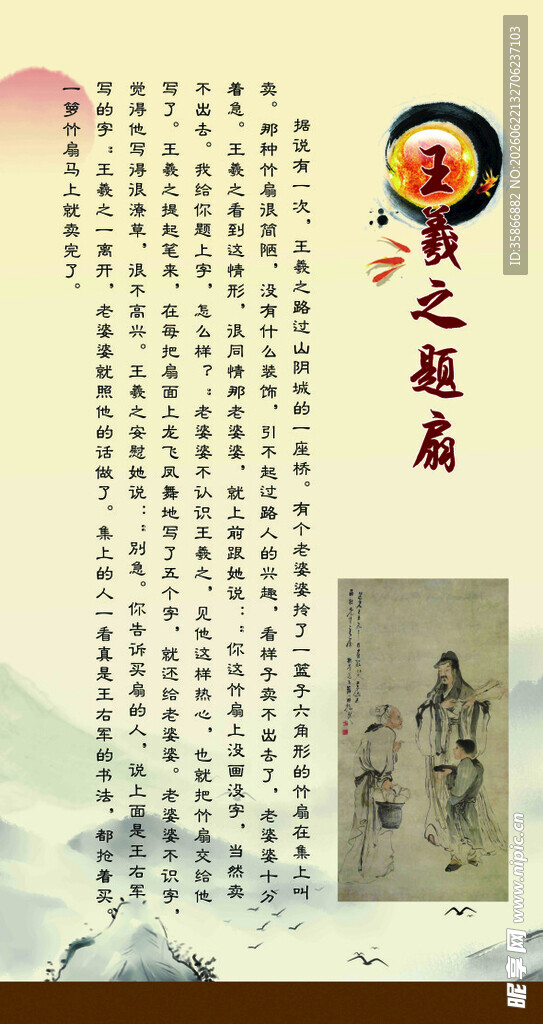 王羲之题扇
据说有一次，王羲之路过山阴城的一座桥。有个老婆婆拎了一篮子六角形的竹扇在集上叫
卖。那种竹扇很简陋，没有什么装饰，引不起过路人的兴趣，看样子卖不出去了，老婆婆十分
着急。王羲之看到这情形，很同情那老婆婆，就上前跟她说：“你这竹扇上没画没字，当然卖
不出去。我给你题上字，怎么样？“老婆婆不认识王羲之，见他这样热心，也就把竹扇交给他
写了。王羲之提起笔来，在每把扇面上龙飞凤舞地写了五个字，就还给老婆婆。老婆婆不识字，
觉得他写得很潦草，很不高兴。王羲之安慰她说：“别急。你告诉买扇的人，说上面是王右军
写的字“王羲之一离开，老婆婆就照他的话做了。集上的人一看真是王右军的书法，都抢着买。
一箩竹扇马上就卖完了。
ID:35866882 NO:20260622132706237103
昵享网 www.nipic.cn